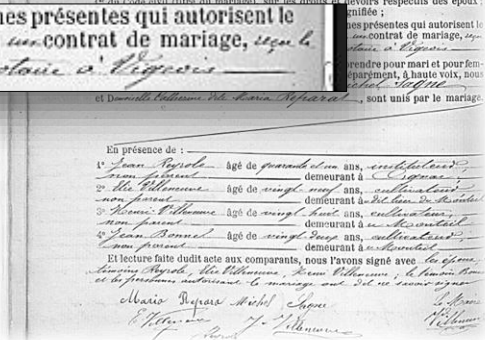 nes présentes qui autorisent le
un contrat de mariage, reçu le
notaire à Vigeois
devoirs respectifs des époux
gnifiée ;
nes présentes qui autorisent le
un contrat de mariage, reçu
notaire à Vigeois
prendre pour mari et pour fem-
éparément, à haute voix, nous
Michel Sagne
et Demoiselle Catherine dite Maria Reparat, sont unis par le mariage.
En présence de :
1° Jean Reyrole âgé de quarante et un ans, instituteur,
non parent demeurant à
2° Elie Villeneuve âgé de vingt neuf ans, cultivateur
non parent demeurant à dit lieu du Monteil
3° Henri Villeneuve âgé de vingt huit ans, cultivateur,
non parent demeurant à u Monteil
4° Jean Bonnel âgé de vingt deux ans, cultivateur,
non parent demeurant à u Monteil
Et lecture faite dudit acte aux comparants, nous l'avons signé avec les époux,
témoins Reyrole, Elie Villeneuve, Henri Villeneuve ; le témoin Bon
et les personnes autorisant le mariage ont dit ne savoir signer
Maria Repara Michel Sagne Le Maire
E Villeneuve Villeneuve